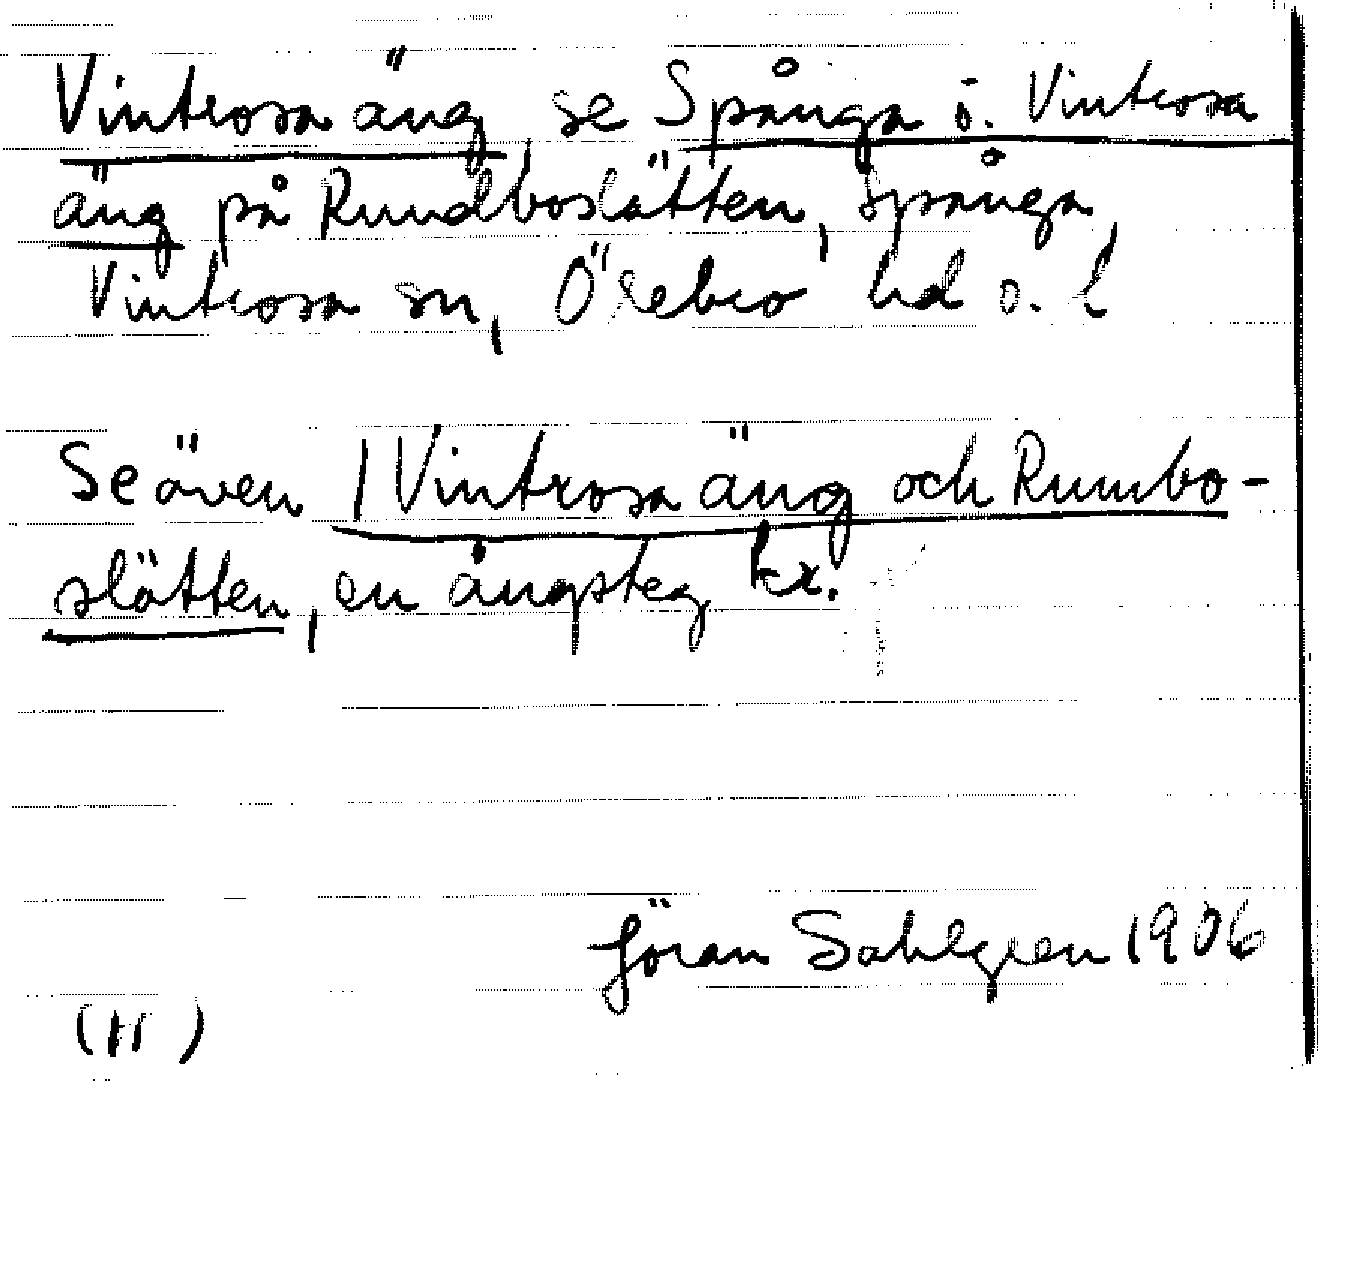 Vintrosa äng, se Spånga i. Vintrosa
äng på Rundboslätten, Spånga,
Vintrosa sn, Örebro hd o. l
Se även I Vintrosa äng och Rumbo-
slätten, en ängsteg
Jöran Sahlgren 1906